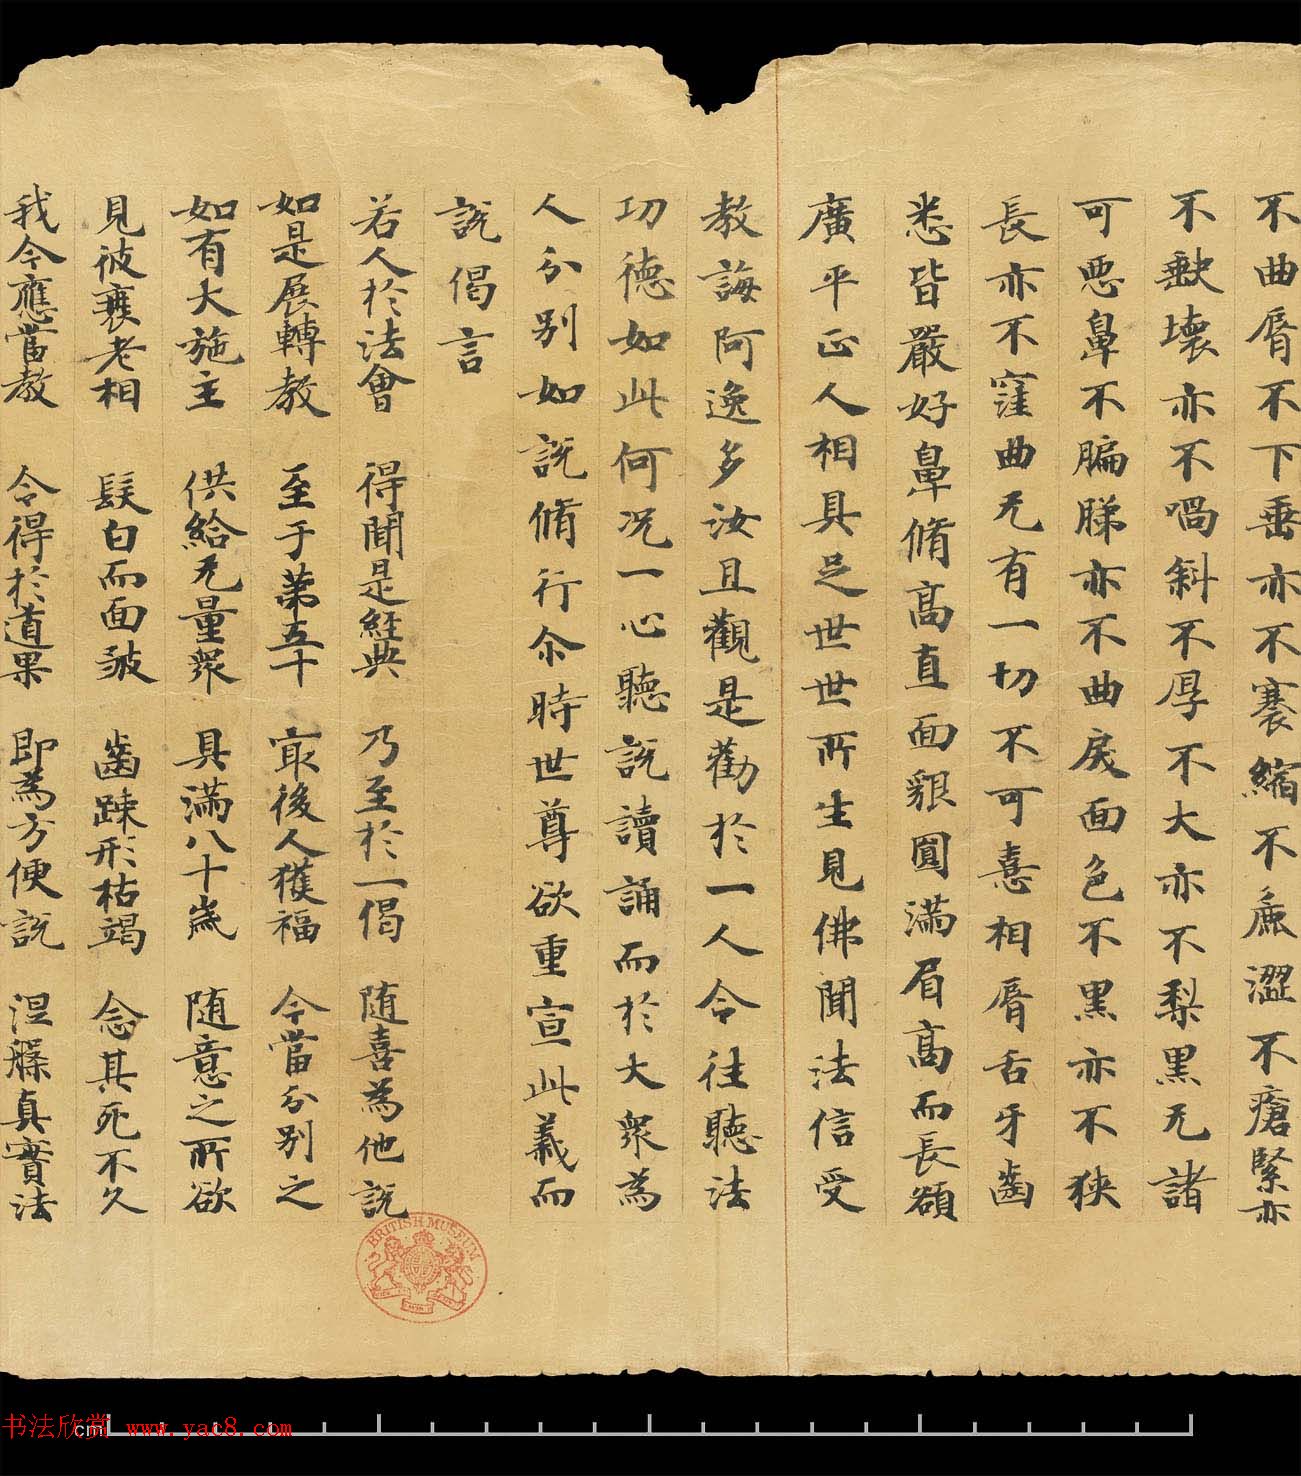 不曲脣不下垂亦不褰縮不麁澀不瘡緊亦
不缺壞亦不喎斜不厚不大亦不梨黑无諸
可惡鼻不膈䏲亦不曲戾面色不黑亦不狹
長亦不窪曲无有一切不可憙相脣舌牙齒
悉皆嚴好鼻脩高直面貌圓滿眉高而長額
廣平正人相具足世世所生見佛聞法信受
教誨阿逸多汝且觀是勸於一人令往聽法
功德如此何况一心聽說讀誦而於大眾為
人分別如說脩行尒時世尊欲重宣此義而
說偈言
若人於法會 得聞是經典 乃至於一偈 随喜為他說
如是展轉教 至于第五十 冣後人獲福 今當分別之
如有大施主 供給无量眾 具滿八十歲 随意之所欲
見彼衰老相 髮白而面皺 齒踈形枯竭 念其死不久
我今應當教 令得於道果 即為方便說 涅槃真實法
BRITISH MUSEUM
书法欣赏 www.yac8.com
cm